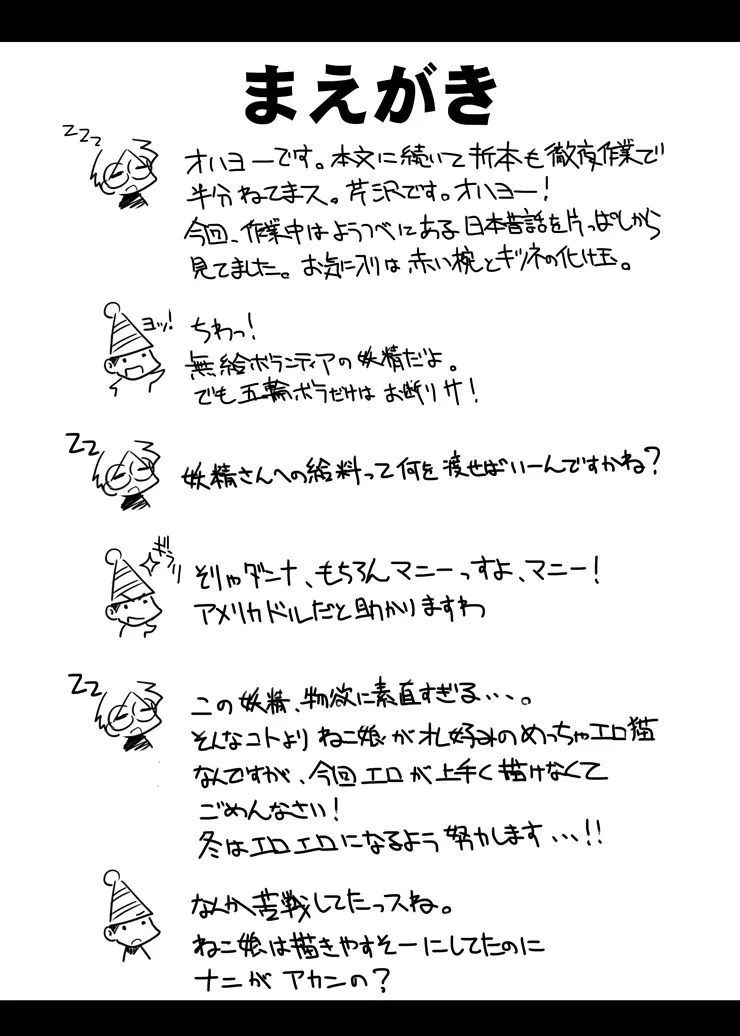 まえがき
ZZZ
オハヨーです。本文に続いて折本も徹夜作業で
半分ねてまス。芹沢です。オハヨー!
今回、作業中はようつべにある日本昔話を片っぱしから
見てました。お気に入りは赤い椀とキツネの化け玉。
ヨッ!
ちわっ!
無給ボランティアの妖精だよ。
でも五輪ボラだけはお断りサ!
ZZ
妖精さんへの給料って何を渡せばいーんですかね?
ギラリ
そりゃダンナ、もちろんマニーっすよ、マニー!
アメリカドルだと助かりますわ
ZZ
この妖精、物欲に素直すぎる・・・。
そんなコトよりねこ娘が札好みのめっちゃエロ猫
なんですが、今回エロが上手く描けなくて
ごめんなさい!
冬はエロエロになるよう努力します・・・!!
なんか苦戦してたっスね。
ねこ娘は描きやすそーにしてたのに
ナニがアカンの?